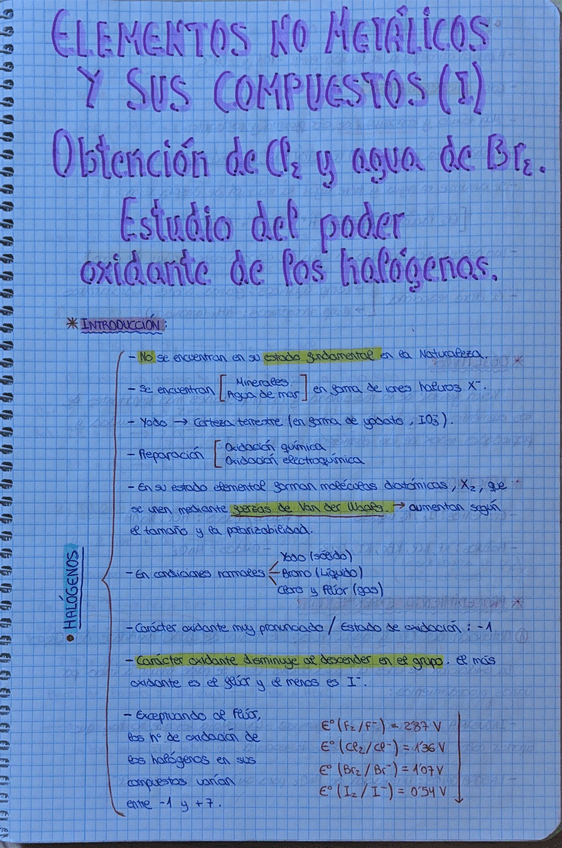 ELEMENTOS NO METÁLICOS
Y SUS COMPUESTOS (I)
Obtención de Cl₂ y agua de Br₂.
Estudio del poder
oxidante de los halógenos.
* INTRODUCCIÓN:
• HALÓGENOS
- No se encuentran en su estado fundamental en la Naturaleza.
- Se encuentran [ Minerales
Agua de mar ] en forma de iones haluros X⁻.
- Yodo → Corteza terrestre (en forma de yodato, IO₃⁻).
- Preparación [ Oxidación química
Oxidación electroquímica
- En su estado elemental forman moléculas diatómicas, X₂, que
se unen mediante fuerzas de Van der Waals. → aumentan según
el tamaño y la polarizabilidad.
- En condiciones normales Yodo (sólido)
Bromo (Líquido)
Cloro y Flúor (gas)
- Carácter oxidante muy pronunciado / Estado de oxidación: -1
- Carácter oxidante disminuye al descender en el grupo. el más
oxidante es el flúor y el menos es I⁻.
- Exceptuando al Flúor,
los nº de oxidación de
los halógenos en sus
compuestos varían
entre -1 y +7.
E° (F₂/F⁻) = 2'87 V
E° (Cl₂/Cl⁻) = 1'36 V
E° (Br₂/Br⁻) = 1'07 V
E° (I₂/I⁻) = 0'54 V